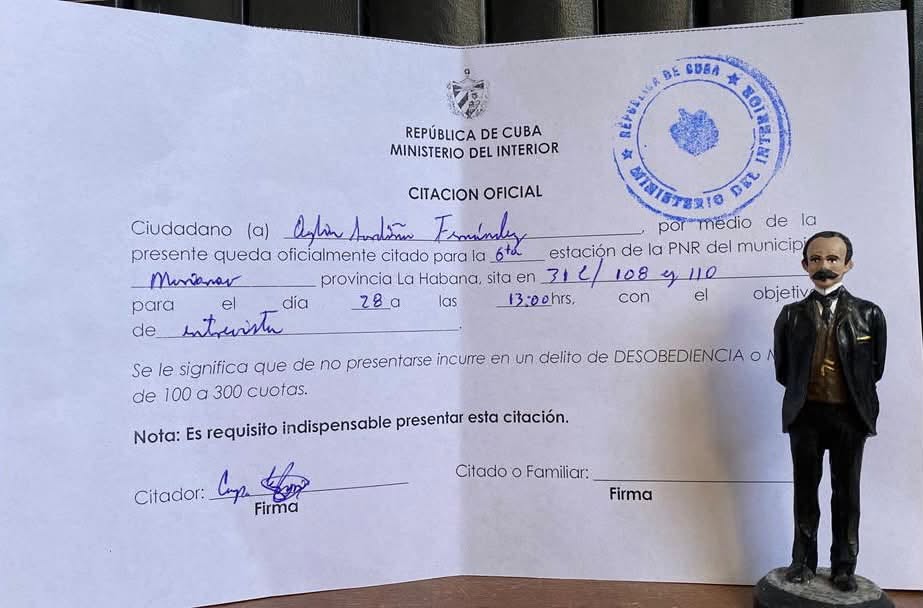 REPÚBLICA DE CUBA
MINISTERIO DEL INTERIOR
REPÚBLICA DE CUBA
MINISTERIO DEL INTERIOR
CITACION OFICIAL
Ciudadano (a) Fernández, por medio de la
presente queda oficialmente citado para la 6ta estación de la PNR del municipi
provincia La Habana, sita en 31 e/ 108 y 110
para el día 28 a las 13:00 hrs, con el objetiv
de entrevista.
Se le significa que de no presentarse incurre en un delito de DESOBEDIENCIA o
de 100 a 300 cuotas.
Nota: Es requisito indispensable presentar esta citación.
Citador:
Firma
Citado o Familiar:
Firma